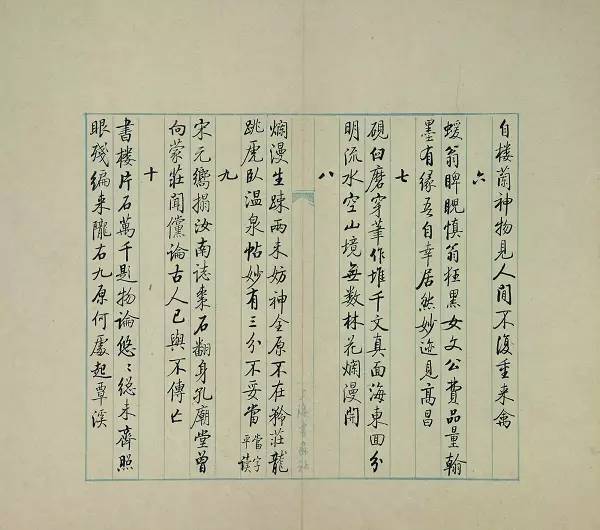 自楼蘭神物見人間不復重来禽
六
蝯翁睥睨慎翁狂黑女文公費品量翰
墨有緣吾自幸居然妙迹見高昌
七
硯臼磨穿筆作堆千文真面海東回分
明流水空山境無数林花爛漫開
八
爛漫生踈两未妨神全原不在矜莊龍
跳虎卧温泉帖妙有三分不妥當當字平读
九
宋元嚮搨汝南誌棗石翻身孔廟堂曾
向蒙莊聞儻論古人已與不傳亡
十
書楼片石萬千題物論悠〻総未齊照
眼殘編来隴右九原何處起覃溪